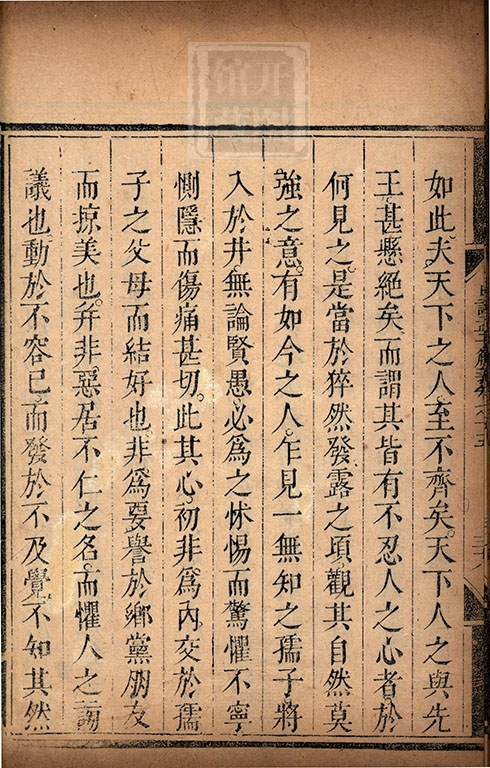 如此夫天下之人至不齊矣天下人之與先
王甚懸絕矣而謂其皆有不忍人之心者於
何見之是當於猝然發露之頃觀其自然莫
強之意有如今之人乍見一無知之孺子將
入於井無論賢愚必為之怵惕而驚懼不寧
惻隱而傷痛甚切此其心初非為內交於孺
子之父母而結好也非為要譽於鄉黨朋友
而掠美也并非惡居不仁之名而懼人之謫
議也動於不容已而發於不及覺不知其然